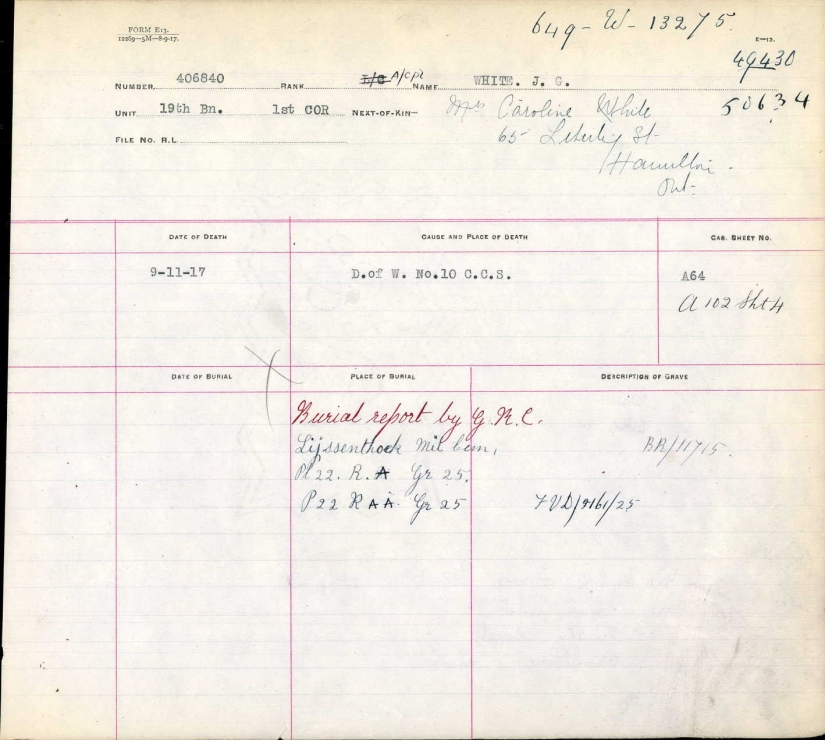 FORM E13.
12269—5M—8-9-17.
649-W-13275.
E—13.
49430
NUMBER 406840 RANK L/C A/Cpl NAME WHITE. J. G.
UNIT 19th Bn. 1st COR NEXT-OF-KIN— Mrs Caroline White 50634
FILE NO. R.L. 65 Liberty St
Hamilton.
Ont.
DATE OF DEATH CAUSE AND PLACE OF DEATH CAS. SHEET NO.
9-11-17 D.of W. No.10 C.C.S. A64
A 102 Sht 4
DATE OF BURIAL PLACE OF BURIAL DESCRIPTION OF GRAVE
Burial report by G.R.C.
Lijssenthoek Mil Cem, BR/11715.
Pl 22. R. A Gr 25.
P 22 R A A. Gr 25 FVD/9161/25